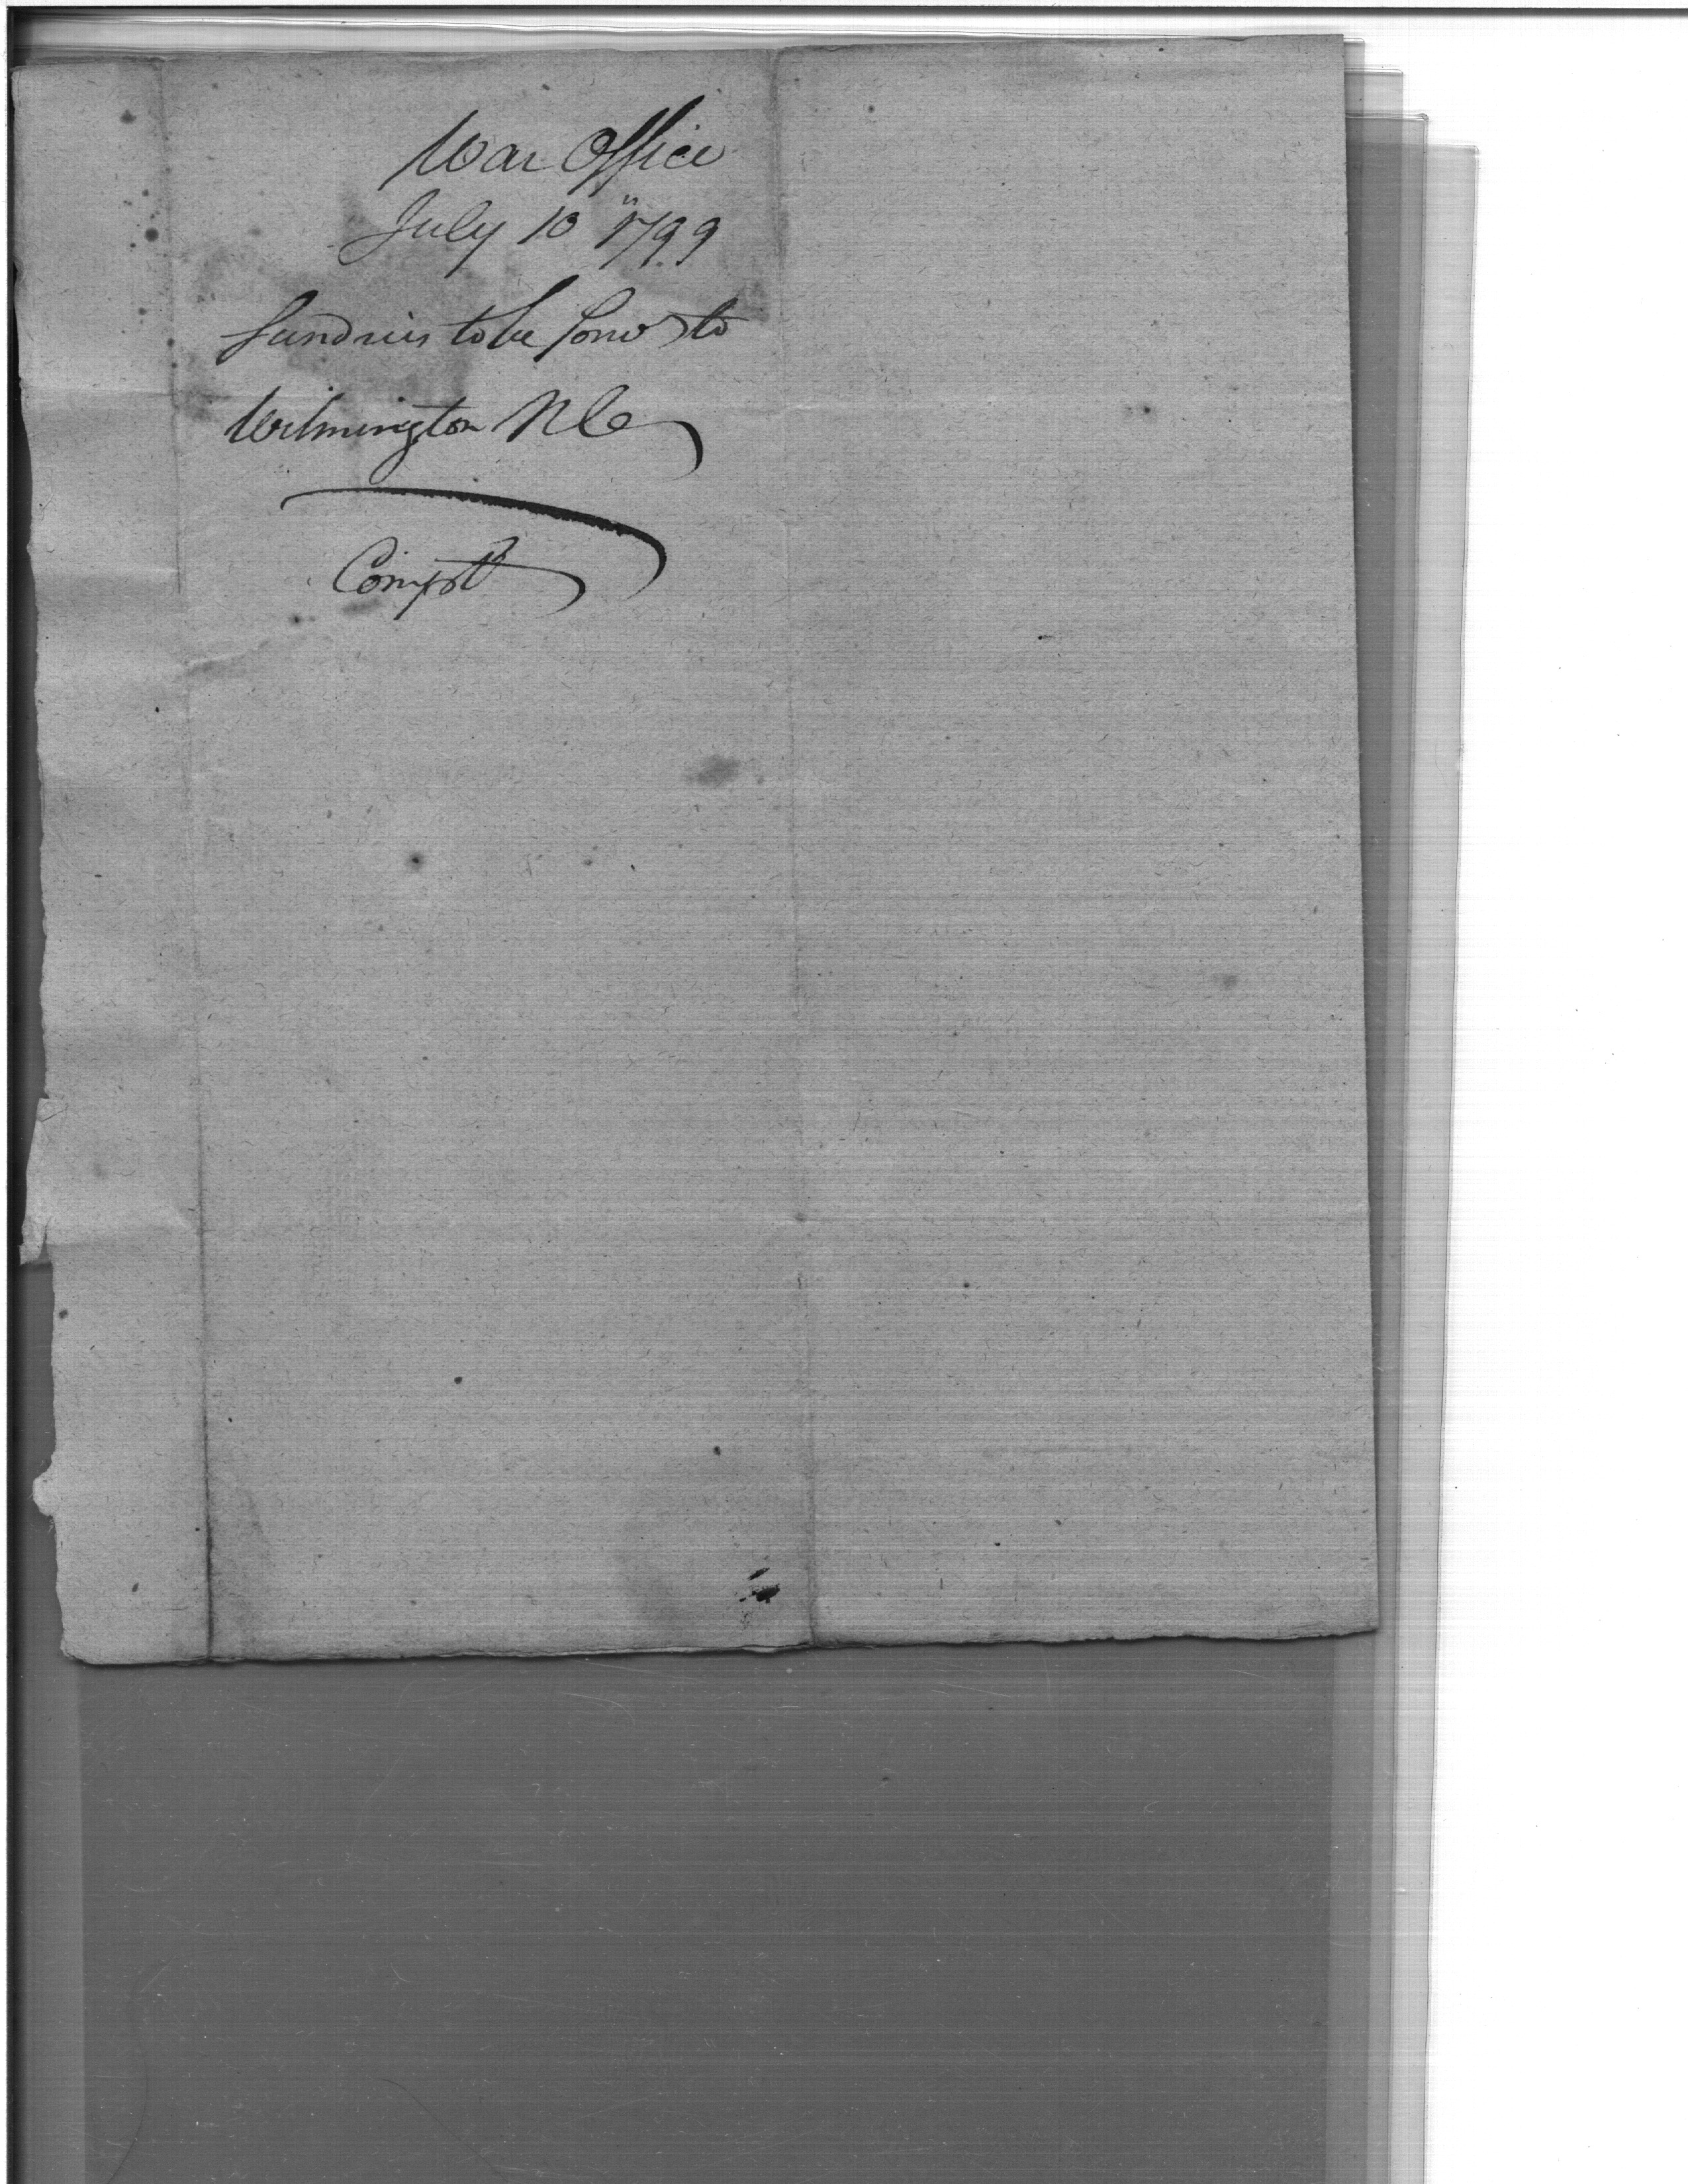 War Office
July 10" 1799
Sundries to be forwd to
Wilmington NC
Compt